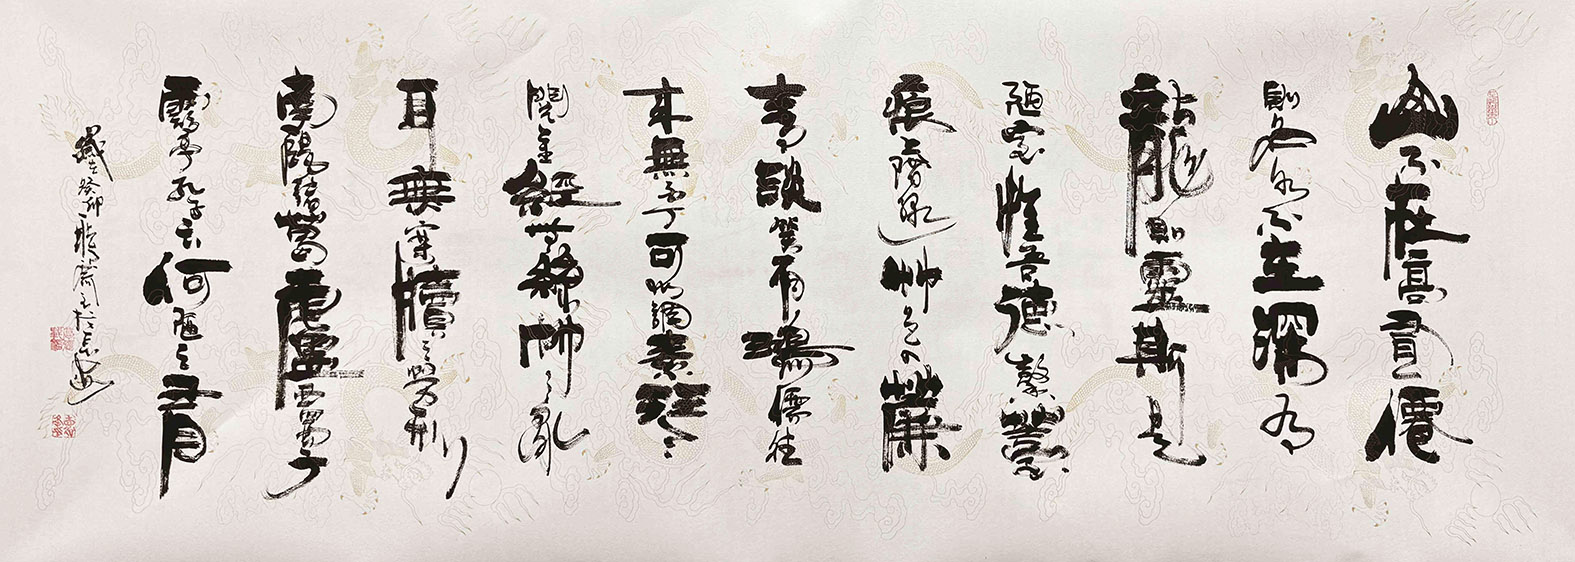 山不在高有僊
則名水不在深有
龍則靈斯是
陋室惟吾德馨苔
痕上階綠艸色入簾
青談笑有鴻儒往
來無白丁可以調素琴
閱金經無絲竹之亂
耳無案牘之勞形
南陽諸葛廬西蜀子
雲亭孔子云何陋之有
歲在癸卯